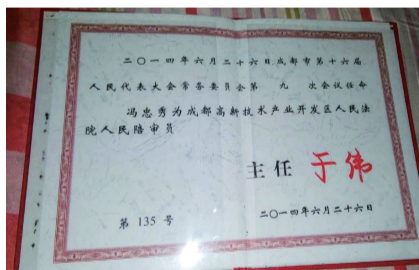 二〇一四年六月二十六日成都市第十六届
人民代表大会常务委员会第 九 次会议任命
冯忠秀为成都高新技术产业开发区人民法
院人民陪审员
主任 于伟
第 135 号
二〇一四年六月二十六日